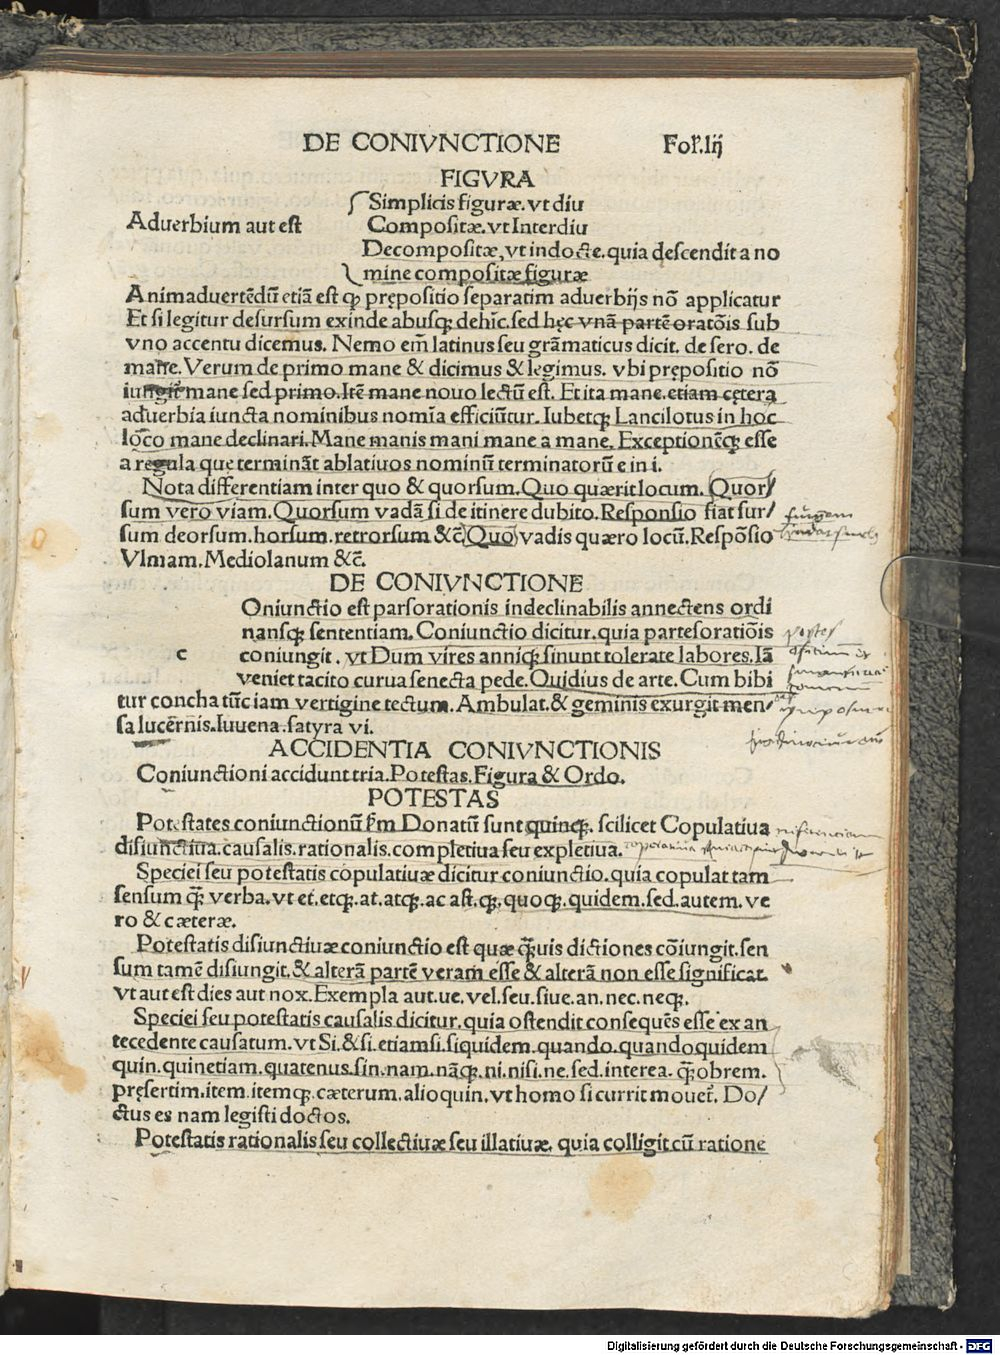 DE CONIVNCTIONE Fol'.lij
FIGVRA
Simplicis figuræ. vt diu
Aduerbium aut est Compositæ. vt Interdiu
Decompositæ, vt indocte. quia descendit a no
mine compositæ figuræ
Animaduertēdū etiā est ꝙ prępositio separatim aduerbijs nō applicatur
Et si legitur desursum exinde abusqꝫ dehīc. sed hęc vnā partē oratōis sub
vno accentu dicemus. Nemo em̄ latinus seu grāmaticus dicit. de sero. de
mane. Verum de primo mane & dicimus & legimus. vbi prępositio nō
iungit mane sed primo. Itē mane nouo lectū est. Et ita mane. etiam cętera
aduerbia iuncta nominibus nomīa efficiūtur. Iubetqꝫ Lancilotus in hoc
loco mane declinari. Mane manis mani mane a mane. Exceptionēqꝫ esse
a regula quę termināt ablatiuos nominū terminatorū e in i.
Nota differentiam inter quo & quorsum. Quo quærit locum. Quor/
sum vero viam. Quorsum vadā si de itinere dubito. Responsio fiat sur/
sum deorsum. horsum. retrorsum &c̄ Quo vadis quæro locū. Respōsio
Vlmam. Mediolanum &c̄.
DE CONIVNCTIONE
Oniunctio est pars orationis indeclinabilis annectens ordi
nansqꝫ sententiam. Coniunctio dicitur. quia partes oratiōis
c coniungit. vt Dum vires anniqꝫ sinunt tolerate labores. Iā
veniet tacito curua senecta pede. Quidius de arte. Cum bibi
tur concha tūc iam vertigine tectum. Ambulat. & geminis exurgit men/
sa lucernis. Iuuena. satyra vi.
ACCIDENTIA CONIVNCTIONIS
Coniunctioni accidunt tria. Potestas. Figura & Ordo.
POTESTAS
Potestates coniunctionū s̄m Donatū sunt quinqꝫ. scilicet Copulatiua
disiunctiua. causalis. rationalis. completiua seu expletiua.
Speciei seu potestatis copulatiuæ dicitur coniunctio. quia copulat tam
sensum qꝫ̄ verba. vt et. etqꝫ. at. atqꝫ. ac ast. qꝫ. quoqꝫ. quidem. sed. autem. ve
ro & cæteræ.
Potestatis disiunctiuæ coniunctio est quæ qꝫ̄uis dictiones cōiungit. sen
sum tamē disiungit. & alterā partē veram esse & alterā non esse significat.
vt aut est dies aut nox. Exempla aut. ue. vel. seu. siue. an. nec. neqꝫ.
Speciei seu potestatis causalis dicitur. quia ostendit consequēs esse ex an
tecedente causatum. vt Si. & si. etiamsi. siquidem. quando. quandoquidem
quin. quinetiam. quatenus. sin. nam. nāqꝫ. ni. nisi. ne. sed. interea. qꝫ̄obrem.
pręsertim. item. itemqꝫ. cæterum. alioquin. vt homo si currit mouet̄. Do/
ctus es nam legisti doctos.
Potestatis rationalis seu collectiuæ seu illatiuæ. quia colligit cū ratione
Digitalisierung gefördert durch die Deutsche Forschungsgemeinschaft - DFG